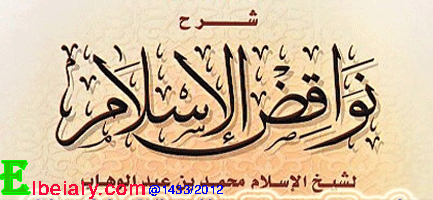 شرح
نواقض الإسلام
لشيخ الإسلام محمد بن عبد الوهاب
Elbeiary.com @1433/2012